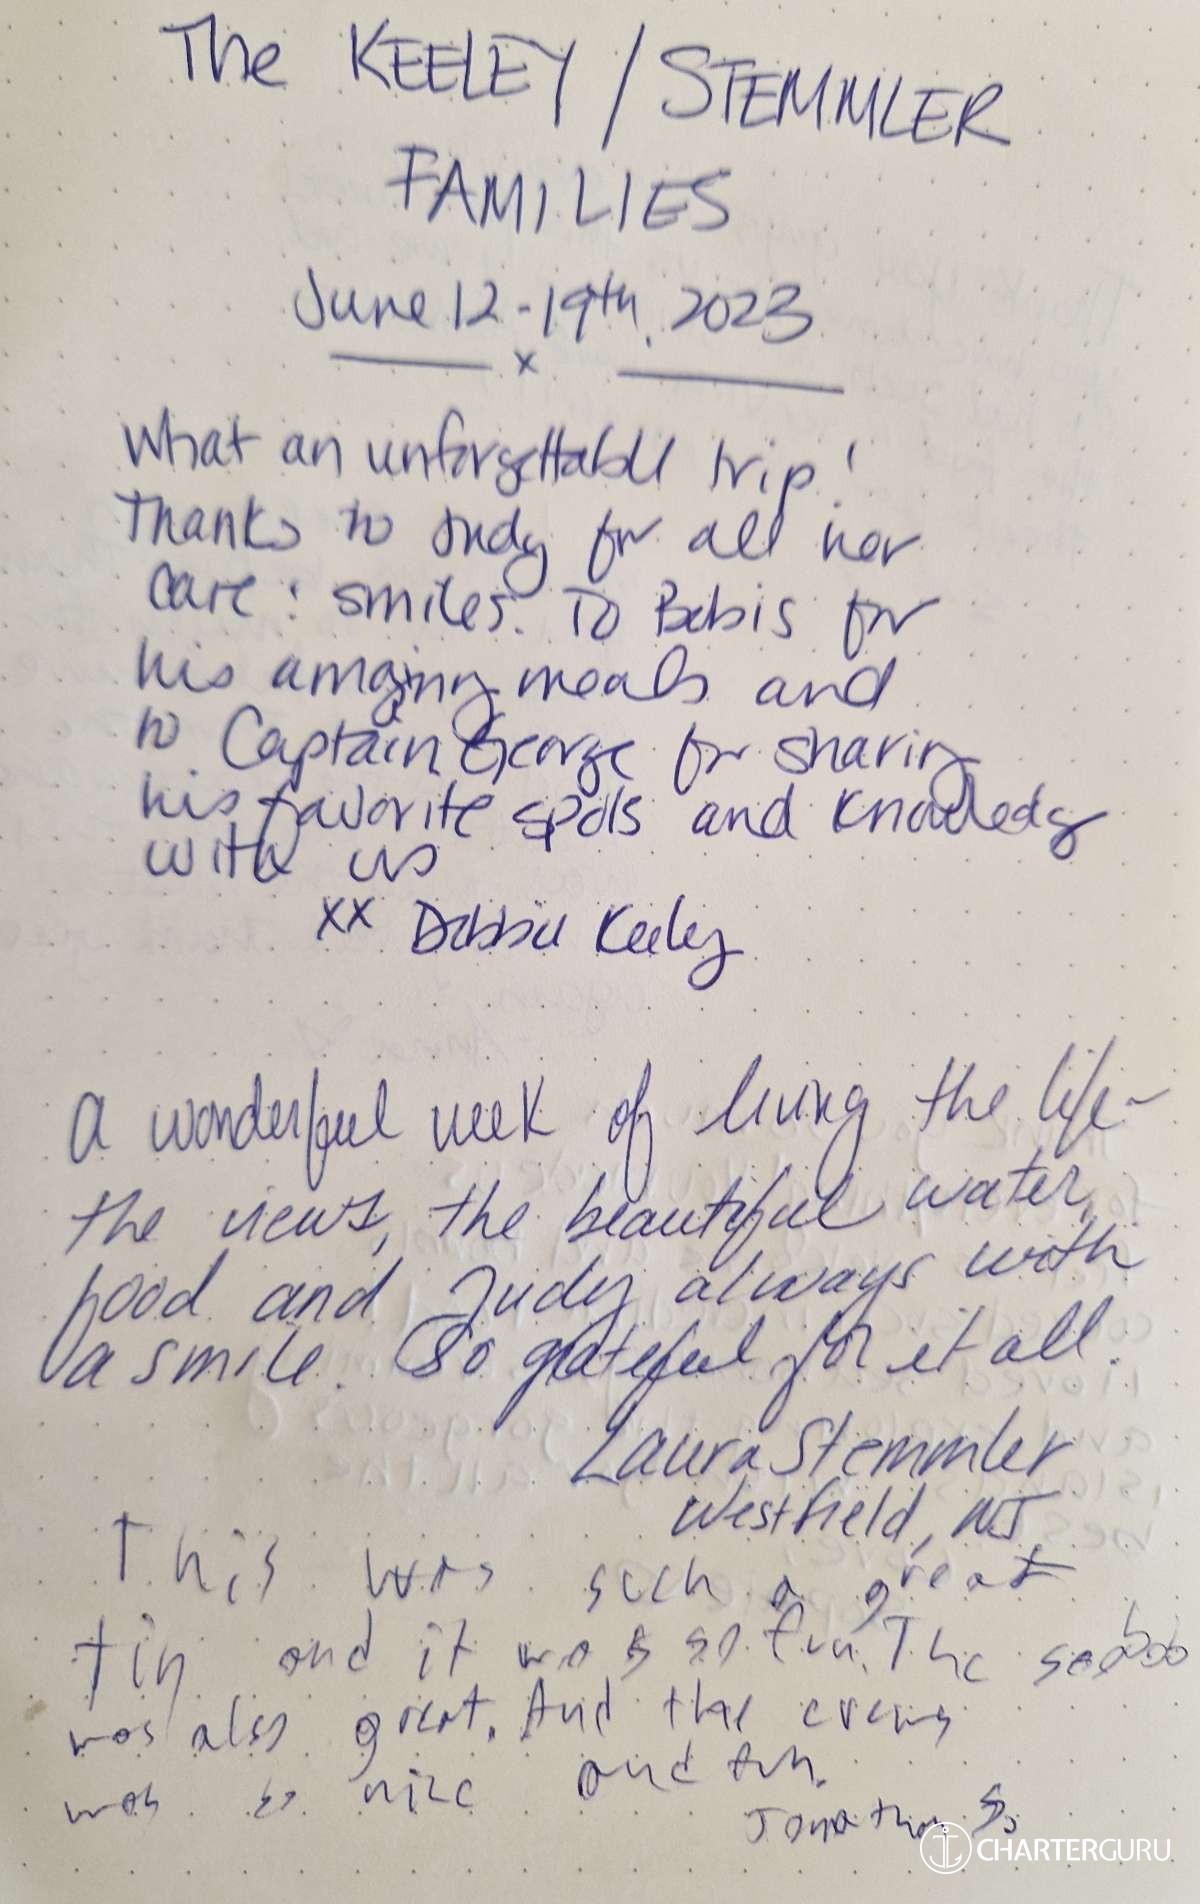 The KEELEY / STEMMLER
FAMILIES
June 12-19th, 2023
x
What an unforgettable trip!
Thanks to Judy for all her
care & smiles. To Babis for
his amazing meals and
to Captain George for sharing
his favorite spots and knowledge
with us
xx Debbie Keeley
A wonderful week of living the life-
the views, the beautiful water,
food and Judy always with
a smile. So grateful for it all.
Laura Stemmler
Westfield, NJ
This was such a great
trip and it was so fun. The seabob
was also great. And the crew
was so nice and fun.
Jonathan S.
CHARTERGURU